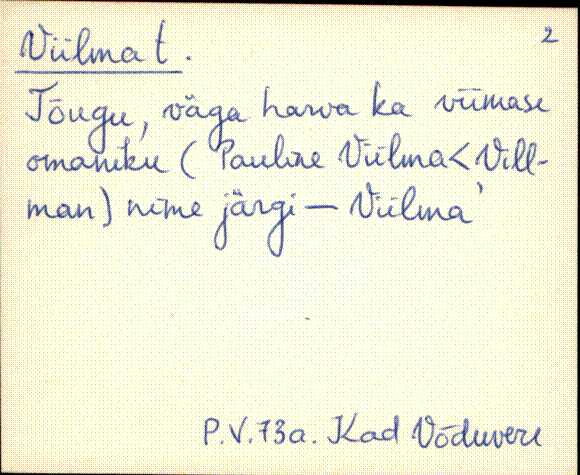 2
Viilma t.
Tõugu, väga harva ka viimase
omaniku (Pauline Viilma < Vill-
man) nime järgi — Viilma'
P.V. 73a. Kad Võduvere